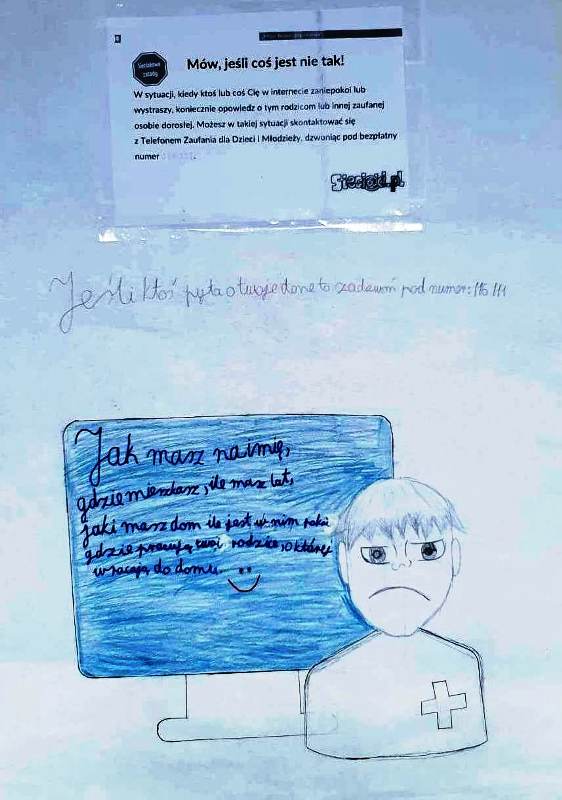 Sieciakowe zasady
Mów, jeśli coś jest nie tak!
W sytuacji, kiedy ktoś lub coś Cię w internecie zaniepokoi lub
wystraszy, koniecznie opowiedz o tym rodzicom lub innej zaufanej
osobie dorosłej. Możesz w takiej sytuacji skontaktować się
z Telefonem Zaufania dla Dzieci i Młodzieży, dzwoniąc pod bezpłatny
numer
Sieciaki.pl
Jeśli ktoś pyta o twoje dane to zadzwoń pod numer: 116 111
Jak masz na imię,
gdzie mieszkasz, ile masz lat,
jaki masz dom ile jest w nim pokoi
gdzie pracują twoi rodzice, o której
wracają do domu.